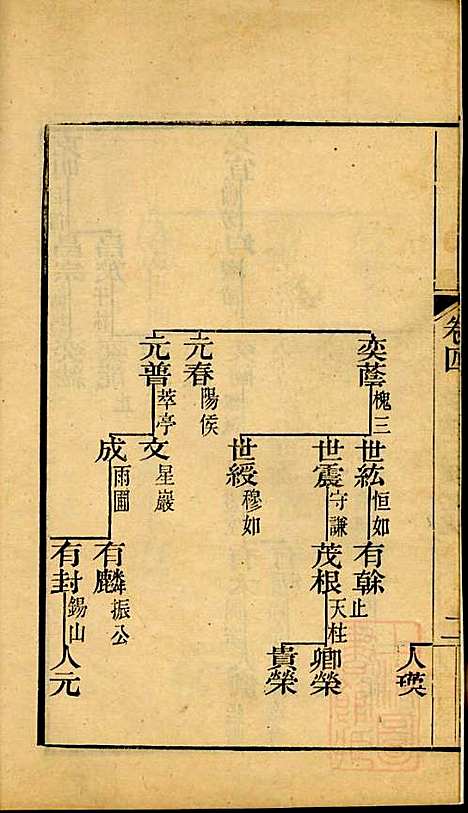 卷四
二
奕蔭 槐三
元春 陽侯
元普 萃亭
世紘 恒如
世震 守謙
世綬 穆如
文 星巖
成 雨圃
有榦 止
茂根 天柱
有麟 振公
有封 錫山
人瑛
卿榮
貴榮
人元